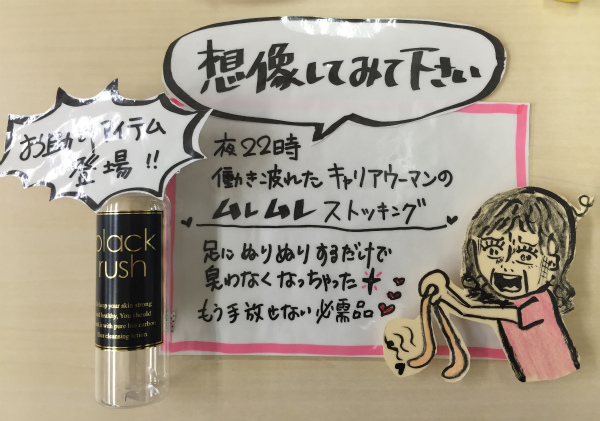 想像してみて下さい
お助けアイテム
登場!!
夜22時
働き疲れたキャリアウーマンの
ムレムレストッキング
足にぬりぬりするだけで
臭わなくなっちゃった
もう手放せない必需品
black
rush
keep your skin strong
healthy, You should
it with pure
cleansing lotion